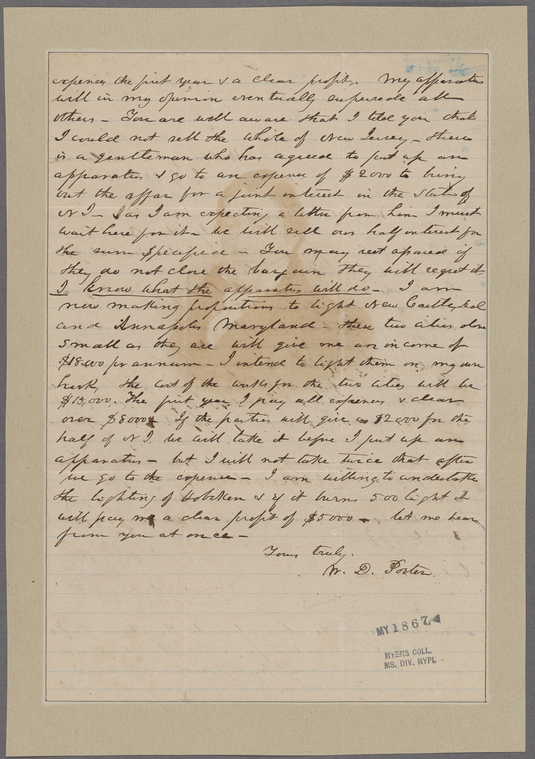 expenses the first year & a clear profit. My apparatus
will in my opinion eventually supersede all
others – You are well aware that I told you that
I could not sell the whole of New Jersey – there
is a gentleman who has agreed to put up an
apparatus & go to an expense of $2000 to bring
out the affair for a joint interest in the State of
N J – as I am expecting a letter from him I must
wait here for it – we will sell our half interest for
the sum specified – You may rest assured if
they do not close the bargain they will regret it
I know what the apparatus will do – I am
now making propositions to light New Castle, Del
and Annapolis Maryland – these two cities
small as they are will give me an income of
$18,000 per annum – I intend to light them on my own
hook, the cost of the works for the two cities will be
$13,000. The first year I pay all expenses & clear
over $5000. If the parties will give 12,000 for the
half of N J. we will take it before I put up an
apparatus – but I will not take twice that after
we go to the expense – I am willing to undertake
the lighting of Hoboken & if it burns 500 light it
will pay me a clear profit of $5000 – let me hear
from you at once –
Yours truly.
W. D. Porter
MY1867
MYERS COLL.
MS. DIV. NYPL